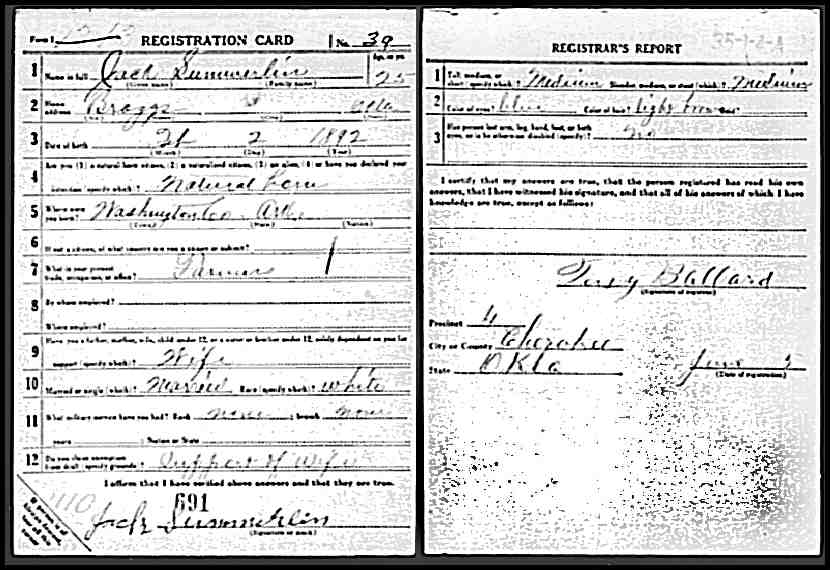 Form 1 REGISTRATION CARD No. 39
Age, in yrs.
1 Name in full Jack Summerlin 25
(Given name) (Family name)
2 Home address Braggs Okla
3 Date of birth 2 1892
(Month) (Day) (Year)
4 Are you (1) a natural-born citizen, (2) a naturalized citizen, (3) an alien, (4) or have you declared your
intention (specify which)? Natural born
5 Where were you born? Washington Co. Ark
(Town) (State) (Nation)
6 If not a citizen, of what country are you a citizen or subject?
7 What is your present trade, occupation, or office? Farmer
8 By whom employed?
Where employed?
9 Have you a father, mother, wife, child under 12, or a sister or brother under 12, solely dependent on you for
support (specify which)? Wife
10 Married or single (which)? Married Race (specify which)? White
11 What military service have you had? Rank none ; branch none
years ; Nation or State
12 Do you claim exemption from draft (specify grounds)? Support of wife
I affirm that I have verified above answers and that they are true.
691
Jack Summerlin
(Signature or mark)
35-1-2-A
REGISTRAR'S REPORT
1 Tall, medium, or short (specify which)? Medium Slender, medium, or stout (which)? Medium
2 Color of eyes? blue Color of hair? light brown Bald?
3 Has person lost arm, leg, hand, foot, or both eyes, or is he otherwise disabled (specify)? No
I certify that my answers are true, that the person registered has read his own
answers, that I have witnessed his signature, and that all of his answers of which I have
knowledge are true, except as follows:
Ballard
(Signature of registrar)
Precinct 4
City or County Cherokee
State Okla June 5
(Date of registration)